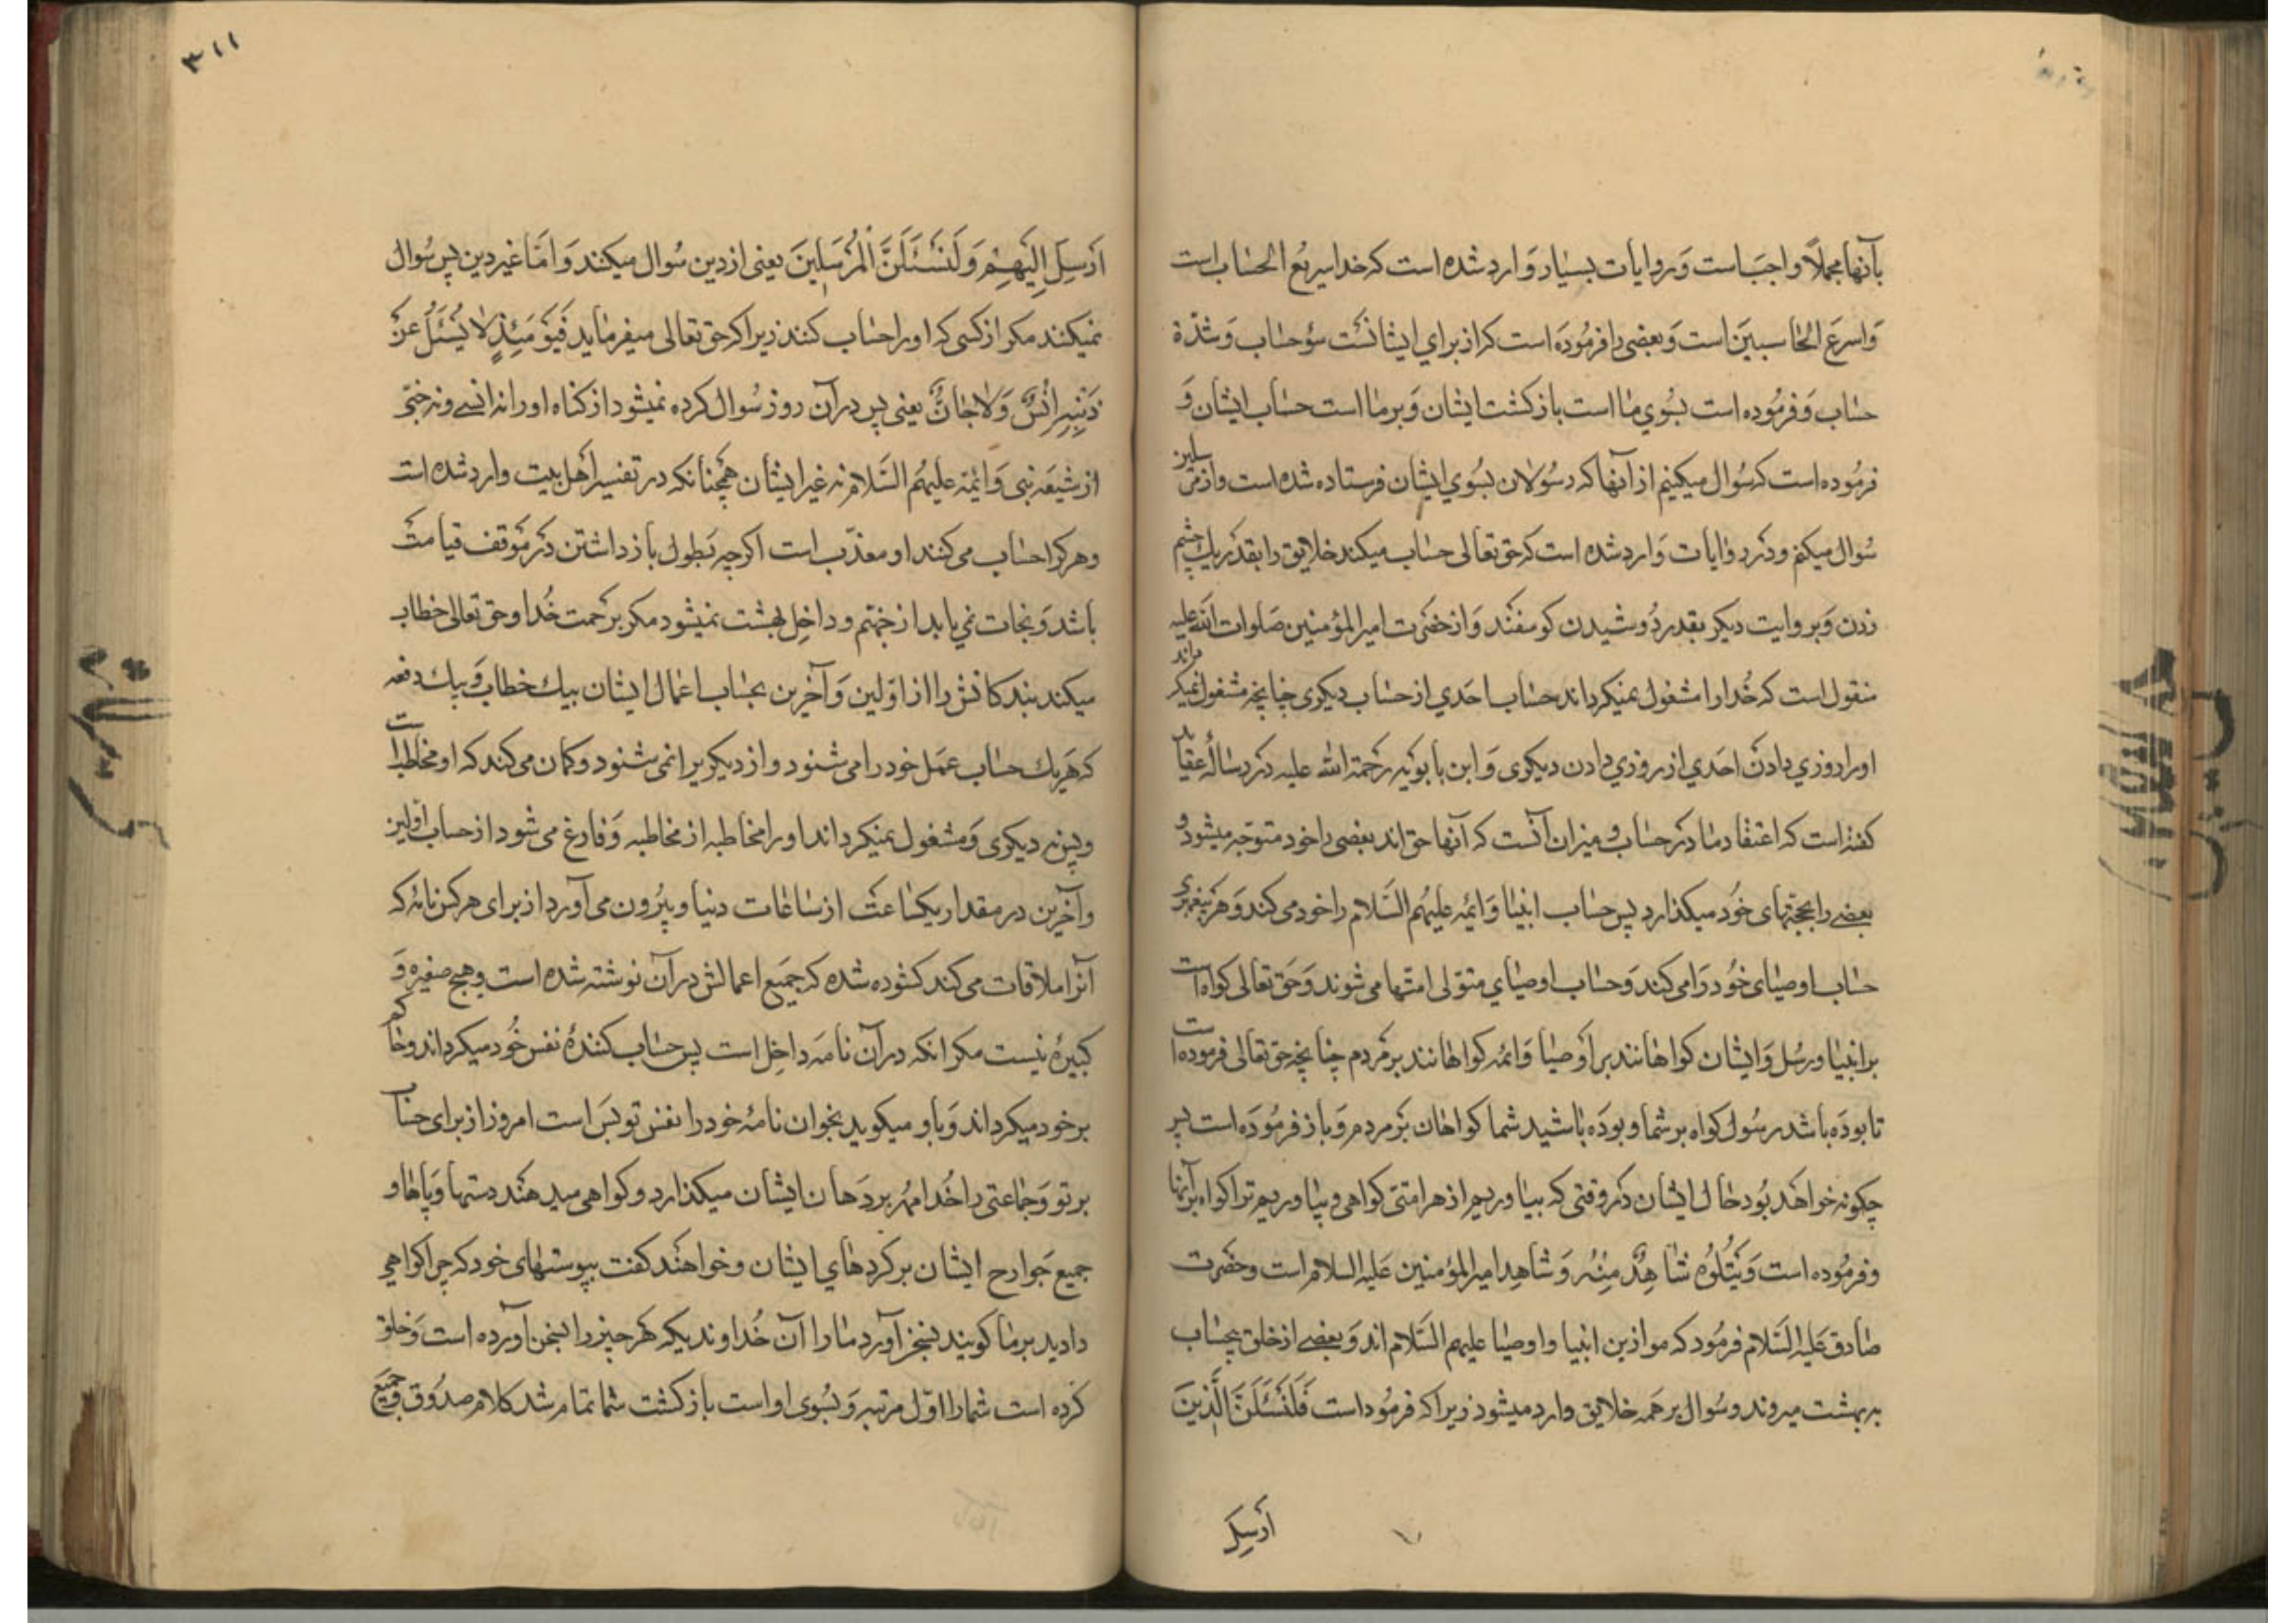 بآنها مجملاً واجبست وَروایات بسیار وَارد شده است که خدا سریعُ الحساب است
وَاسرعَ الحاسبینَ است وَبعضی را فرمُوده است که از برای ایشانست سؤحساب وَشدّة
حساب وَفرمُوده است بسُوی ما است بازکشت ایشان وَبرما است حساب ایشان وَ
فرمُوده است که سُوال میکنیم از آنها که رسُولان بسُوی ایشان فرستاده شده است واز مرسلین
سُوال میکنم ودَر روایات وَارد شده است که حق تعالی حساب میکند خلایق را بقدر یك چشم
زدن وَبروایت دیکر بقدر دُوشیدن کوسفند وَاز حضرَت امیرالمؤمنین صَلوات الله علیه
منقول است که خُدا را مشغول نمیکرداند حساب احَدی از حساب دیکری چنانچه مشغول نمیکرداند
اورا روزی دادن احَدی از روزی دادن دیکری وَابن بابویه رَحمة الله علیه دَر رسالهٔ عقاید
کفته است که اعتقاد ما دَر حساب و میزان آنست که آنها حق اند بعضی را خود متوجّه میشود و
بعضے را بحجتهای خوُد میکذارد پس حساب انبیا وَائمه علیهُم السَّلام را خود می کند وَهر پیغمبری
حساب اوصیای خُود رَا می کند وَحساب اوصیای متوّلی امتّها می شوند وَحَق تعالی کواه است
بر انبیا ورسُل وَایشان کواهانند بر اَوصیا وَائمه کواهانند بر مَردم چنانچه حق تعالی فرموده است
تا بودَه باشد رسُول کواه بر شما وبودَه باشید شما کواهان بَر مردم وَباز فرمُودَه است پس
چکونه خواهَد بوُد حال ایشان دَر وقتی که بیاوریم از هر امتیّ کواهی و بیاوریم ترا کواه بر آنها
وفرمُوده است وَیَتْلُوُهُ شاهِدٌ مِنْهُ وَشاهِد امیرالمؤمنین عَلیه السلام است وحضَرت
صادق عَلیه السَّلام فرمُود که موازین انبیا واوصیا علیهم السَّلام اند وَبعضے از خلق بیحساب
به بهشت میروند وسُوال بر هَمه خلایق وارد میشود زیرا که فرمُود است فَلَنَسْئَلَنَّ الَّذینَ
اُرسِلَ
٣١١
اُرْسِلَ اِلَیْهِمْ وَلَنَسْئَلَنَّ الْمُرْسَلینَ یعنی از دین سُوال میکنند وَامّا غیر دین پس سُوال
نمیکنند مکر از کسی که اورا حساب کنند زیرا که حق تعالی میفرماید فَیَوْمَئِذٍ لا یُسْئَلُ عَنْ
ذَنْبِهِ اِنْسٌ وَلاجانٌّ یعنی پس در آن روز سُوال کرده نمیشود از کناه او را نه انسے ونه جنّی
از شیعَه نبی وَائمّه علیهُم السَّلام نه غیر ایشان همچنانکه در تفسیر اهل بیت وارد شده است
وهر که را حساب می کنند او معذّب است اکرچه بَطول باز داشتن دَر مَوقف قیامت
باشد وَنجات نمی یابد از جهنّم وداخِل بهشت نمیشود مکر برَحمت خُدا وحق تعالی خطاب
میکند بندکانش را از اوّلین وَآخِرین بحساب اعمال ایشان بیك خطاب وَبیك دفعه
که هَریك حساب عمَل خود را می شنود واز دیکریرا نمی شنود وکمان می کند که او مخاطب است
وبس نه دیکری وَمشغول نمیکرداند اورا مخاطبه از مخاطبه وَفارغ می شود از حساب اوّلین
وآخِرین در مقدار یکساعَت از ساعات دنیا وبیرُون می آورد از برای هر کس نامهٔ که
آنرا ملاقات می کند کشوده شده که جمیَع اعمالش در آن نوشته شده است وهیج صغیره وَ
کبیرهٔ نیست مکر انکه در آن نامَه داخِل است پس حساب کنندهٔ نفس خُود میکرداند وحاکم
بر خود میکرداند وَباو میکوید بخوان نامهٔ خود را نفس تو بسَ است امروز از برای حساب
بر تو وَجماعتی را خُدا مهُر بر دَهان ایشان میکذارد وکواهی میدهند دستها وَپاها و
جمیع جَوارح ایشان بر کردهای ایشان وخواهَند کفت بپوستهای خود که چرا کواهی
دادید بر ما کویند بسخن آورد ما را آن خُداوندیکه هَر چیز را بسخن آورده است وَخلق
کَرده است شما را اوّل مرتبه وَبسُوی او است بازکشت شما تمام شد کلام صدُوق وَجمیع